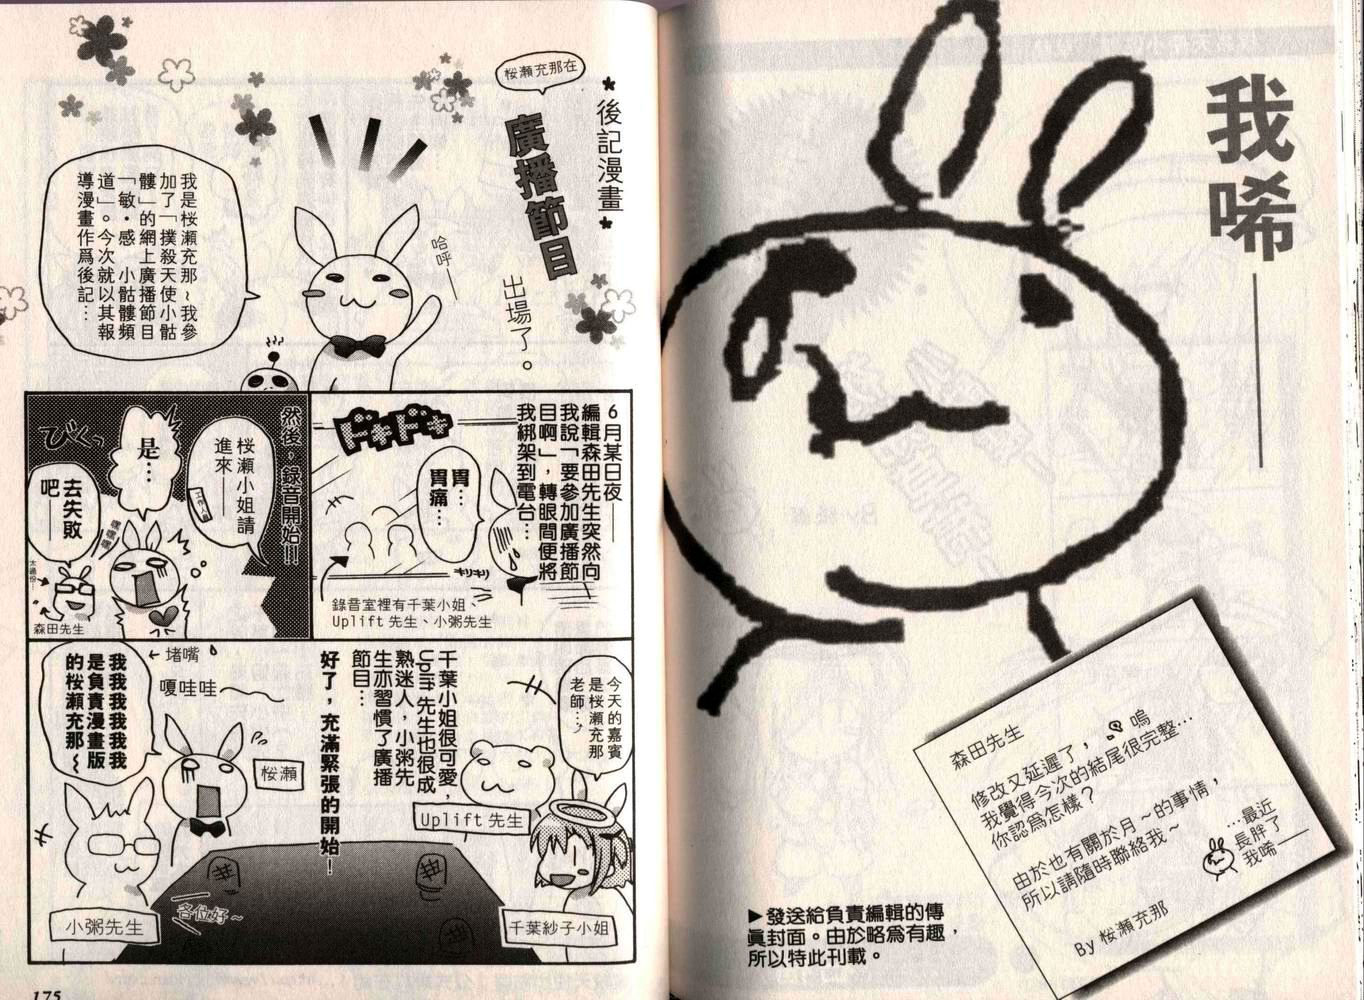 我
唏
——
森田先生
修改又延遲了，嗚
我覺得今次的結尾很完整…
你認為怎樣？
由於也有關於月～的事情，
所以請隨時聯絡我～
…最近
長胖了
我唏——
By 桜瀬充那
▶發送給負責編輯的傳
眞封面。由於略為有趣，
所以特此刊載。
桜瀬充那在
後記漫畫
廣播節目
出場了。
哈呼——
我是桜瀬充那~我參
加了「撲殺天使小骷
髏」的網上廣播節目
「敏・感 小骷髏頻
道」。今次就以其報
導漫畫作爲後記…
6月某日夜——
編輯森田先生突然向
我說「要參加廣播節
目啊」，轉眼間便將
我綁架到電台…
ドキドキ
胃…
胃痛…
キリキリ
錄音室裡有千葉小姐、
Uplift 先生、小粥先生
然後，錄音開始!!
桜瀬小姐請
進來——
工作人員
是…
びくっ
去失敗
吧——
太過份…
森田先生
今天的嘉賓
是桜瀬充那
老師…
千葉小姐很可愛，
Uplift 先生也很成
熟迷人，小粥先
生亦習慣了廣播
節目…
好了，充滿緊張的開始！
Uplift 先生
千葉紗子小姐
←堵嘴
嗄哇哇
桜瀬
我我我我我我
是負責漫畫版
的桜瀬充那~
各位好~
小粥先生
175